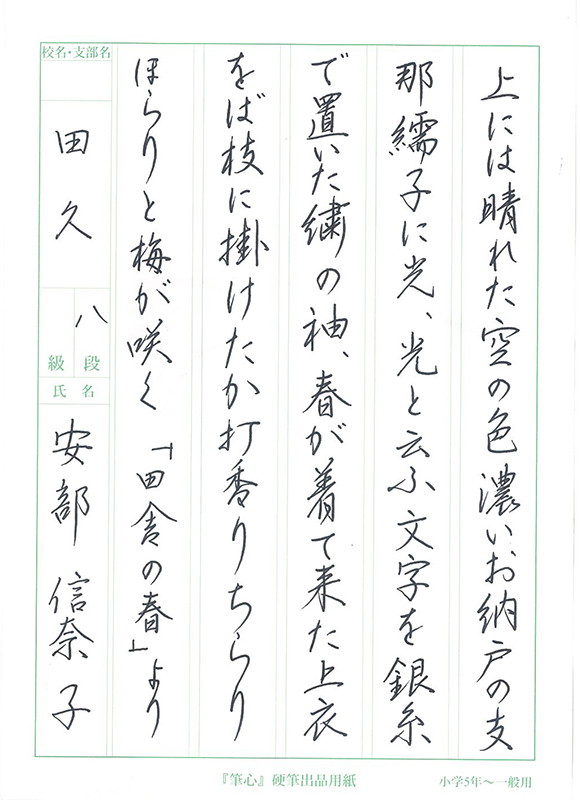 上には晴れた空の色濃いお納戸の支
那繻子に光、光と云ふ文字を銀糸
で置いた繍の袖、春が着て来た上衣
をば枝に掛けたか打香りちらり
ほらりと梅が咲く 「田舎の春」より
校名・支部名
田久
八
級 段
氏名
安部 信奈子
『筆心』硬筆出品用紙
小学5年～一般用